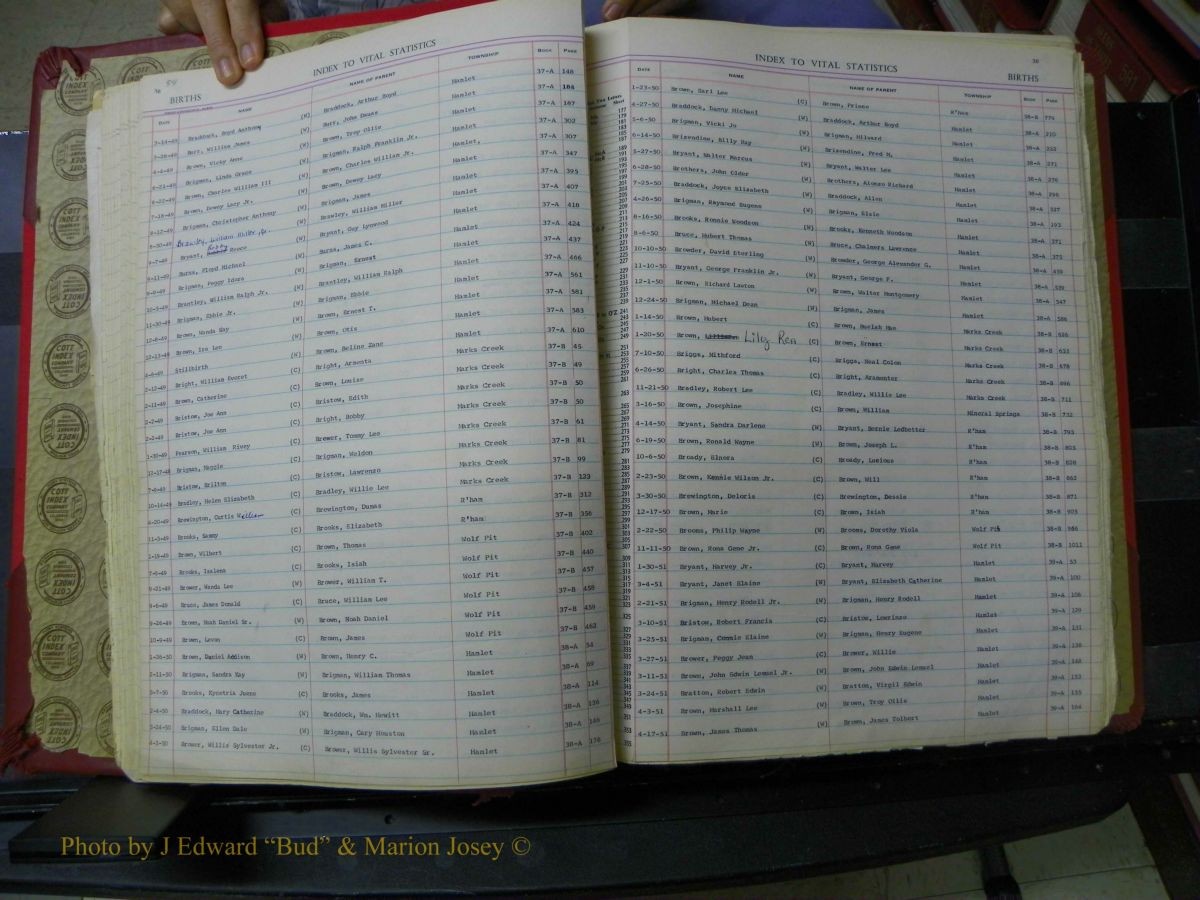 INDEX TO VITAL STATISTICS
BIRTHS
DATE NAME NAME OF PARENT TOWNSHIP BOOK PAGE
Braddock, Boyd Anthony (W) Braddock, Arthur Boyd Hamlet 37-A 148
Burr, William James (W) Burr, John Hamlet 37-A 184
Brown, Vicky Anne (W) Brown, Troy Ollie Hamlet 37-A 187
Brigman, Linda Grace (W) Brigman, Ralph Franklin Jr. Hamlet 37-A 302
Brown, Charles William III (W) Brown, Charles William Jr. Hamlet 37-A 307
Brown, Dewey Lacy Jr. (W) Brown, Dewey Lacy Hamlet 37-A 347
Brigman, Christopher Anthony (W) Brigman, James Hamlet 37-A 395
Brawley, William Miller Jr. Brawley, William Miller Hamlet 37-A 407
Bryant, Bobby Bruce (W) Bryant, Guy Lynwood Hamlet 37-A 418
Burns, Floyd Michael (W) Burns, James C. Hamlet 37-A 424
Brigman, Peggy (W) Brigman, Ernest Hamlet 37-A 437
Brantley, William Ralph Jr. (W) Brantley, William Ralph Hamlet 37-A 466
Brigman, Ebbie Jr. (W) Brigman, Ebbie Hamlet 37-A 561
Brown, Wanda Kay (W) Brown, Ernest T. Hamlet 37-A 581
Brown, Ira Lee (W) Brown, Otis Hamlet 37-A 583
Stillbirth Brown, Beline Zane Hamlet 37-A 610
Bright, William Everet (C) Bright, Armenta Marks Creek 37-B 45
Brown, Catherine (C) Brown, Louise Marks Creek 37-B 49
Bristow, Joe Ann (C) Bristow, Edith Marks Creek 37-B 50
Bristow, Joe Ann (C) Bright, Bobby Marks Creek 37-B 50
Pearson, William Rivey (C) Brewer, Tommy Lee Marks Creek 37-B 61
Brigman, Maggie (C) Brigman, Weldon Marks Creek 37-B 81
Bristow, Brilton (C) Bristow, Lawrenzo Marks Creek 37-B 99
Bradley, Helen Elizabeth (C) Bradley, Willie Lee Marks Creek 37-B 123
Brewington, Curtis William (C) Brewington, Dumas R'ham 37-B 312
Brooks, Sammy Brooks, Elizabeth R'ham 37-B 356
Brown, Wilbert (C) Brown, Thomas Wolf Pit 37-B 402
Brooks, Izalena (C) Brooks, Isiah Wolf Pit 37-B 440
Brower, Wanda Lee (W) Brower, William T. Wolf Pit 37-B 457
Bruce, James Donald (C) Bruce, William Lee Wolf Pit 37-B 458
Brown, Noah Daniel Sr. (W) Brown, Noah Daniel Wolf Pit 37-B 459
Brown, Levon (C) Brown, James Wolf Pit 37-B 462
Brown, Daniel Addison (W) Brown, Henry C. Hamlet 38-A 54
Brigman, Sandra Kay (W) Brigman, William Thomas Hamlet 38-A 69
Brooks, Kynetria Juene (C) Brooks, James Hamlet 38-A 114
Braddock, Mary Catherine (W) Braddock, Wm. Hewitt Hamlet 38-A 136
Brigman, Ellen Dale (W) Brigman, Cary Houston Hamlet 38-A 146
Brower, Willis Sylvester Jr. (C) Brower, Willis Sylvester Sr. Hamlet 38-A 176
INDEX TO VITAL STATISTICS
BIRTHS
DATE NAME NAME OF PARENT TOWNSHIP BOOK PAGE
1-23-50 Brown, Earl Lee (C) Brown, Prince R'ham 38-B 774
4-27-50 Braddock, Danny Michael (W) Braddock, Arthur Boyd Hamlet 38-A 210
5-6-50 Brigman, Vicki Jo (W) Brigman, Hilward Hamlet 38-A 232
6-14-50 Brizendine, Billy Ray (W) Brizendine, Fred M. Hamlet 38-A 271
5-27-50 Bryant, Walter Marcus (W) Bryant, Walter Lee Hamlet 38-A 276
6-28-50 Brothers, John Elder (W) Brothers, Alonzo Richard Hamlet 38-A 299
7-25-50 Braddock, Joyce Elizabeth (W) Braddock, Allen Hamlet 38-A 327
4-26-50 Brigman, Raymond Eugene (W) Brigman, Elsie Hamlet 38-A 193
8-16-50 Brooks, Ronnie Woodson (W) Brooks, Kenneth Woodson Hamlet 38-A 371
8-6-50 Bruce, Hubert Thomas (W) Bruce, Chalmers Lawrence Hamlet 38-A 373
10-10-50 Browder, David Sterling (W) Browder, George Alexander G. Hamlet 38-A 439
11-10-50 Bryant, George Franklin Jr. (W) Bryant, George F. Hamlet 38-A 539
12-1-50 Brown, Richard Lawton (W) Brown, Walter Montgomery Hamlet 38-A 547
12-24-50 Brigman, Michael Dean (W) Brigman, James Hamlet 38-A 586
1-14-50 Brown, Hubert (C) Brown, Buelah Mae Marks Creek 38-B 626
1-20-50 Brown, Lily Rea (C) Brown, Ernest Marks Creek 38-B 633
7-10-50 Briggs, Mithford (C) Briggs, Neal Colon Marks Creek 38-B 678
6-26-50 Bright, Charles Thomas (C) Bright, Aramenter Marks Creek 38-B 696
11-21-50 Bradley, Robert Lee (C) Bradley, Willis Lee Marks Creek 38-B 711
3-16-50 Brown, Josephine (C) Brown, William Mineral Springs 38-B 732
4-14-50 Bryant, Sandra Darlene (W) Bryant, Bernie Ledbetter R'ham 38-B 793
6-19-50 Brown, Ronald Wayne (W) Brown, Joseph L. R'ham 38-B 803
10-6-50 Broady, Elnora (C) Broady, Lucious R'ham 38-B 828
2-23-50 Brown, Kennie Wilson Jr. (C) Brown, Will R'ham 38-B 862
3-30-50 Brewington, Deloris (C) Brewington, Dessie R'ham 38-B 871
12-17-50 Brown, Marie (C) Brown, Isiah R'ham 38-B 903
2-22-50 Brooms, Philip Wayne (W) Brooms, Dorothy Viola Wolf Pit 38-B 986
11-11-50 Brown, Rons Gene Jr. (C) Brown, Rons Gene Wolf Pit 38-B 1011
1-30-51 Bryant, Harvey Jr. (C) Bryant, Harvey Hamlet 39-A 53
3-4-51 Bryant, Janet Elaine (W) Bryant, Elizabeth Catherine Hamlet 39-A 100
2-21-51 Brigman, Henry Rodell Jr. (W) Brigman, Henry Rodell Hamlet 39-A 106
3-10-51 Bristow, Robert Francis (C) Bristow, Lowrinzo Hamlet 39-A 129
3-25-51 Brigman, Connie Elaine (W) Brigman, Henry Eugene Hamlet 39-A 131
3-27-51 Brower, Peggy Jean (C) Brower, Willie Hamlet 39-A 138
3-11-51 Brown, John Edwin Lemuel Jr. (W) Brown, John Edwin Lemuel Hamlet 39-A 148
3-24-51 Bratton, Robert Edwin (W) Bratton, Virgil Edwin Hamlet 39-A 153
4-3-51 Brown, Marshall Lee (W) Brown, Troy Ollie Hamlet 39-A 155
4-17-51 Brown, James Thomas (W) Brown, James Tolbert Hamlet 39-A 164
Photo by J Edward “Bud” & Marion Josey ©